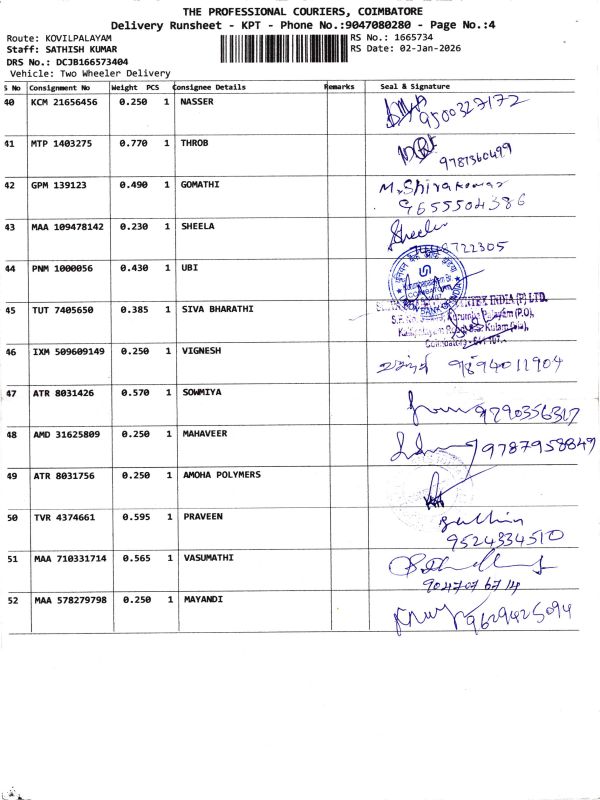 THE PROFESSIONAL COURIERS, COIMBATORE
Delivery Runsheet - KPT - Phone No.:9047080280 - Page No.:4
Route: KOVILPALAYAM RS No.: 1665734
Staff: SATHISH KUMAR RS Date: 02-Jan-2026
DRS No.: DCJB166573404
Vehicle: Two Wheeler Delivery
S No Consignment No Weight PCS Consignee Details Remarks Seal & Signature
40 KCM 21656456 0.250 1 NASSER 9500327172
41 MTP 1403275 0.770 1 THROB 9787360499
42 GPM 139123 0.490 1 GOMATHI M. Shivakumar
9655504386
43 MAA 109478142 0.230 1 SHEELA Sheela
722305
44 PNM 1000056 0.430 1 UBI
45 TUT 7405650 0.385 1 SIVA BHARATHI INDIA (P) LTD.
Coimbatore - 641 107.
46 IXM 509609149 0.250 1 VIGNESH 9894011904
47 ATR 8031426 0.570 1 SOWMIYA 9790356317
48 AMD 31625809 0.250 1 MAHAVEER 9787958849
49 ATR 8031756 0.250 1 AMOHA POLYMERS
50 TVR 4374661 0.595 1 PRAVEEN
9524334510
51 MAA 710331714 0.565 1 VASUMATHI
9047076714
52 MAA 578279798 0.250 1 MAYANDI 9629425094